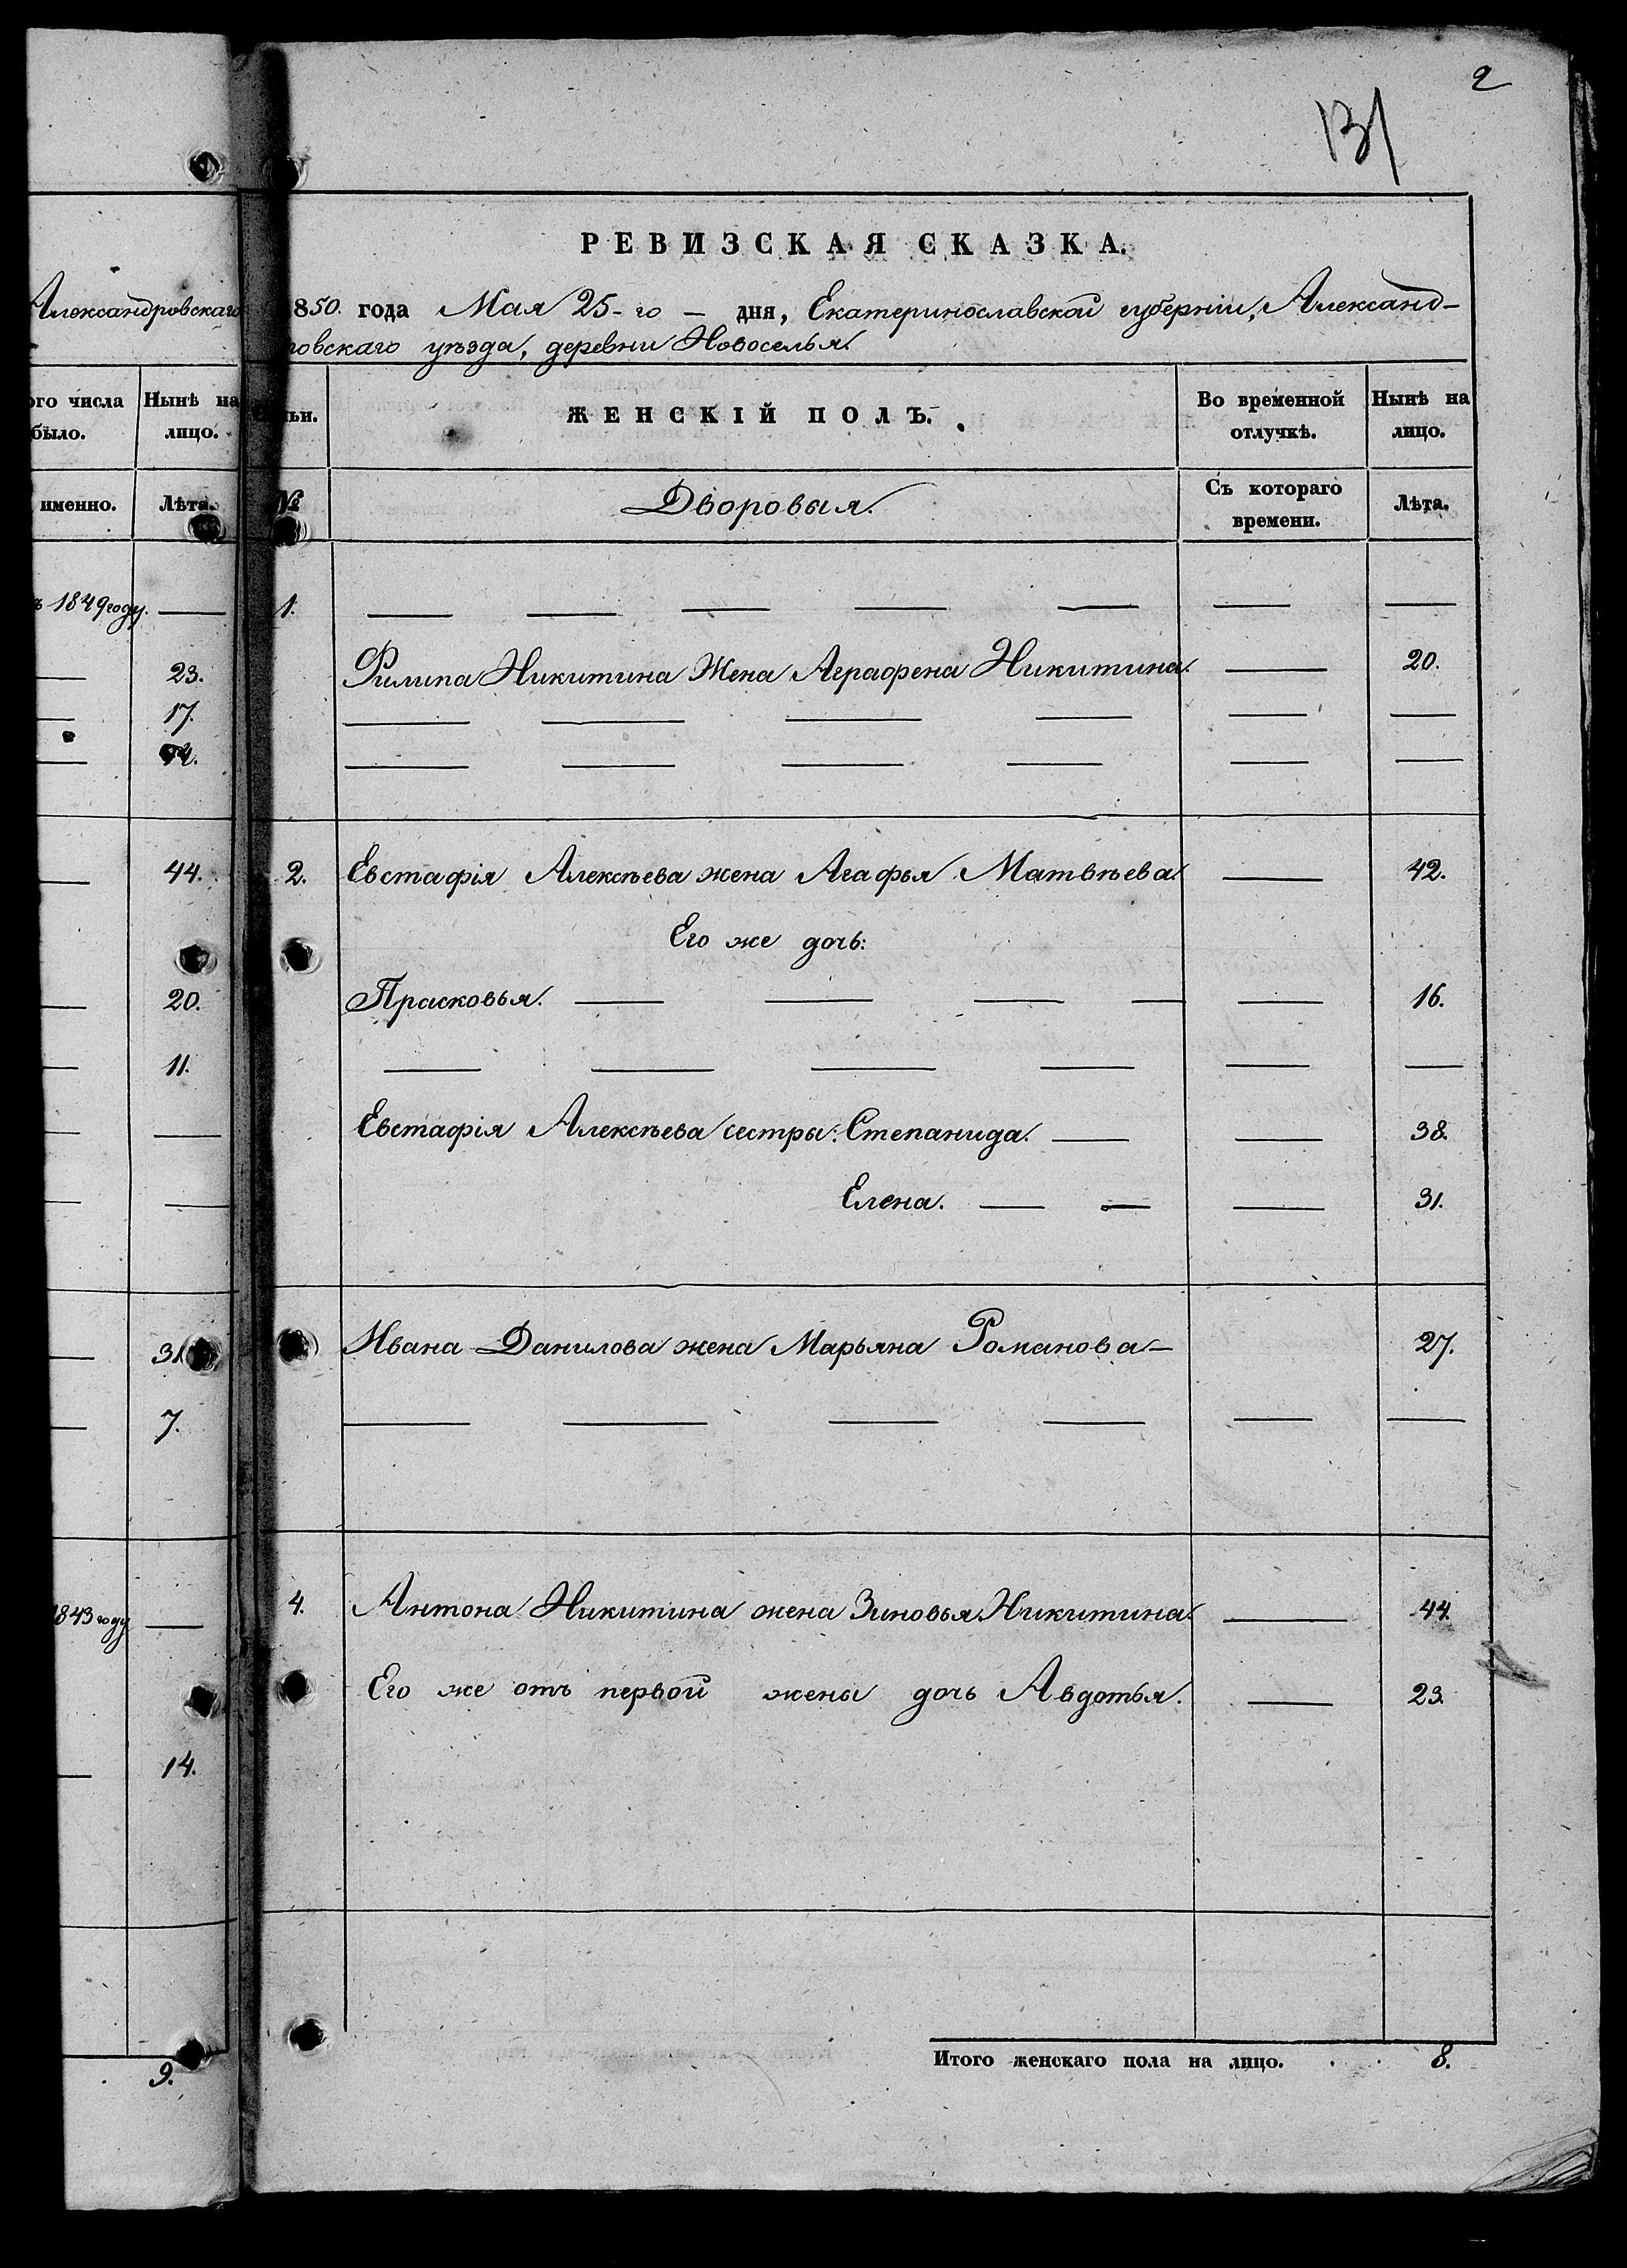 2
131
Александровскаго
ого числа было.
Нынѣ на лицо.
именно.
Лѣта.
ъ 1849 году. —
— 23.
— 17.
— 44.
— 20.
— 11.
— 31
— 7.
1843 году —
— 14.
9.
РЕВИЗСКАЯ СКАЗКА.
850. года Мая 25-го — дня, Екатеринославской губерніи, Александ-
ровскаго уѣзда, деревни Новоселья.
ьи.
ЖЕНСКІЙ ПОЛЪ.
Во временной отлучкѣ.
Нынѣ на лицо.
№
Дворовыя.
Съ котораго времени.
Лѣта.
1. — — — — — — —
Филипа Никитина Жена Аграфена Никитина. — 20.
— — — — — —
— — — — — —
2. Евстафія Алексѣева жена Агафья Матвѣева. — 42.
Его же дочь:
Прасковья. — — — — — 16.
— — — — — —
Евстафія Алексѣева сестры: Степанида. — — 38.
Елена. — — — 31.
Ивана Данилова жена Марьяна Романова — 27.
— — — — — —
4. Антона Никитина жена Зиновья Никитина. — 44.
Его же отъ первой жены дочь Авдотья. — 23.
Итого женскаго пола на лицо. . . 8.